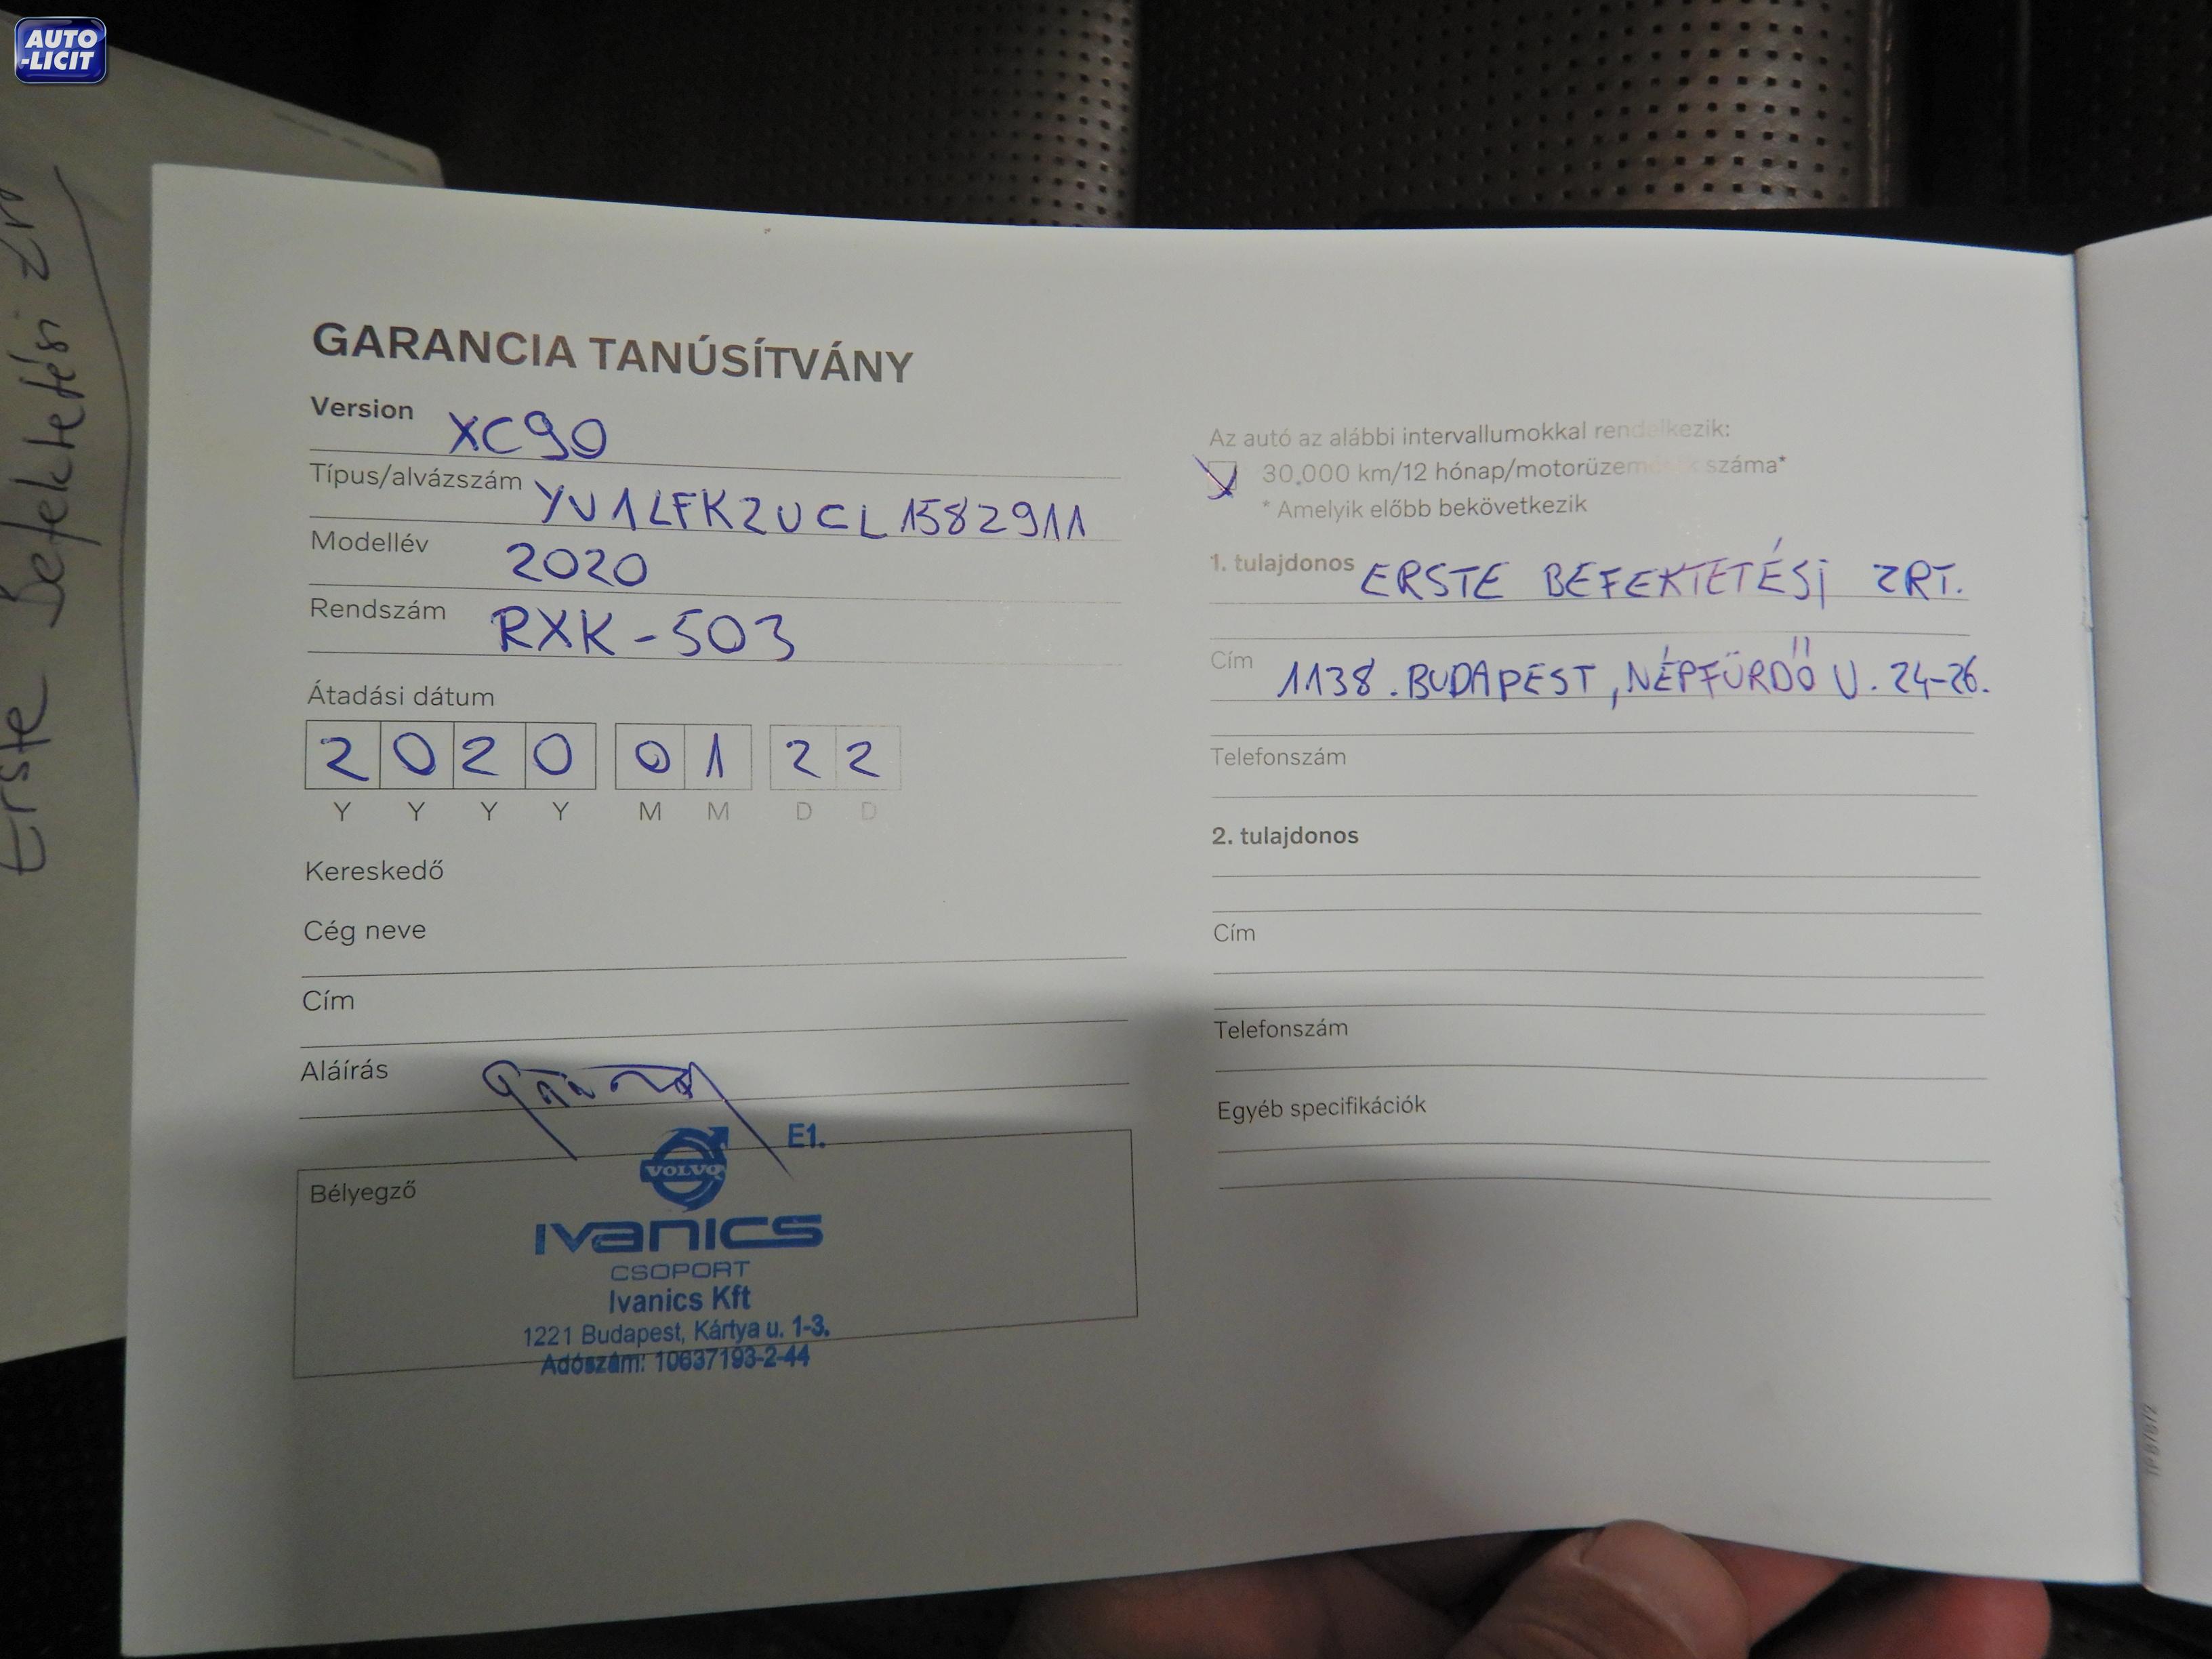 AUTO
-LICIT
Erste Befektetési Zrt
GARANCIA TANÚSÍTVÁNY
Version XC90
Típus/alvázszám YV1LFK2UCL1582911
Modellév 2020
Rendszám RXK-503
Átadási dátum
2020 01 22
Y Y Y Y M M D D
Kereskedő
Cég neve
Cím
Aláírás
Bélyegző
E1.
VOLVO
Ivanics
CSOPORT
Ivanics Kft
1221 Budapest, Kártya u. 1-3.
Adószám: 10637193-2-44
Az autó az alábbi intervallumokkal rendelkezik:
30.000 km/12 hónap/motorüzemórák száma*
* Amelyik előbb bekövetkezik
1. tulajdonos ERSTE BEFEKTETÉSI ZRT.
Cím 1138. BUDAPEST, NÉPFÜRDŐ U. 24-26.
Telefonszám
2. tulajdonos
Cím
Telefonszám
Egyéb specifikációk